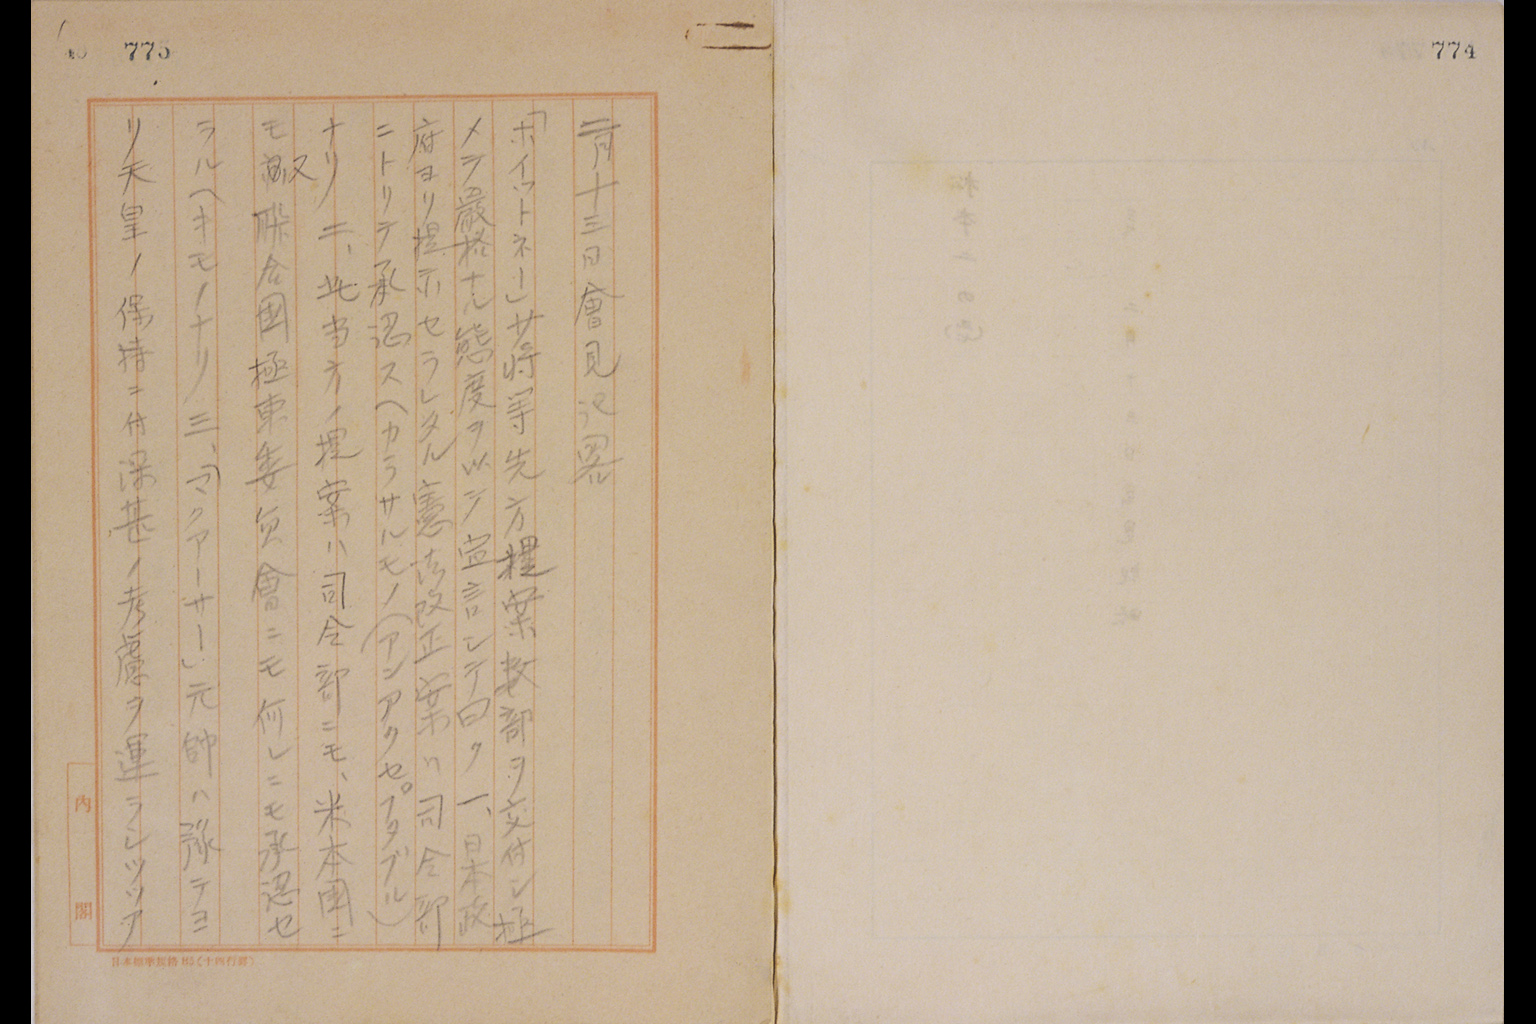 774
775
二月十三日會見記畧
「ホイットネー」少将等先方提案数部ヲ交付シ極
メテ厳格ナル態度ヲ以テ宣言シテ曰ク 一、日本政
府ヨリ提示セラレタル憲法改正案ハ司令部
ニトリテ承認スヘカラサルモノ(アンアクセプタブル)
ナリ 二、此当方ノ提案ハ司令部ニモ、米本國ニ
モ又聯合國極東委員會ニモ何レニモ承認セ
ラルヘキモノナリ 三、「マクアーサー」元帥ハ豫テヨ
リ天皇ノ保持ニ付深甚ノ考慮ヲ運ラシツツア
内閣